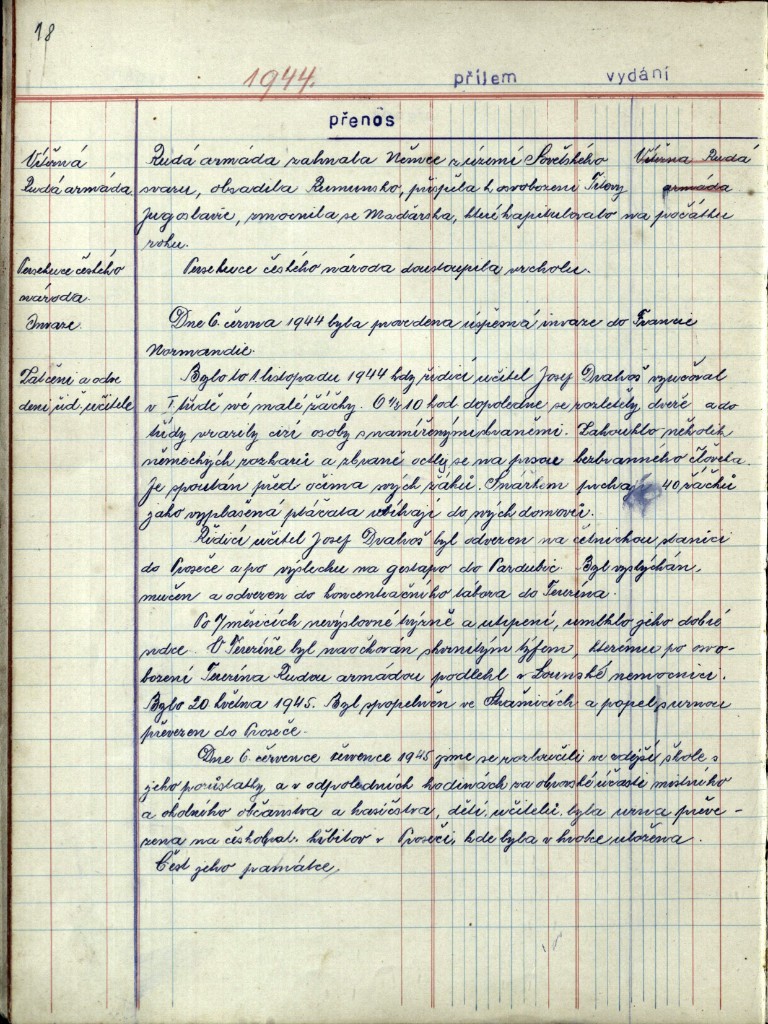 18
1944. příjem vydání
přenos
Vítězná Rudá armáda zahnala Němce z území Sovětského Vítězna Rudá
Rudá armáda. svazu, obsadila Rumunsko, přispěla k osvobození Titovy armáda
Jugoslavie, zmocnila se Maďarska, které kapitulovalo na počátku
roku.
Persekuce českého Persekuce českého národa dostoupila vrcholu.
národa.
Invaze. Dne 6. června 1944 byla provedena úspěšná invaze do Francie
Normandie.
Zatčení a odve Bylo to 1. listopadu 1944 kdy řídící učitel Josef Dvakoš vyučoval
dení říd. učitele v I třídě své malé žáčky. O 1/2 10 hod dopoledne se rozletěly dveře a do
třídy vrazily cizí osoby s namířenými zbraněmi. Zahouklo několik
německých rozkazů a zbraně octly se na prsou bezbranného člověka.
Je spoután před očima svých žáků. Snářkem prchají 40 žáčků
jako vyplašená ptáčata ubíhají do svých domovů.
Řídící učitel Josef Dvakoš byl odvezen na četnickou stanici
do Proseče a po výslechu na gestapo do Pardubic. Byl vyslýchán,
mučen a odvezen do koncentračního tábora do Terezína.
Po 7 měsících nevýslovné trýzně a utrpení, umlklo jeho dobré
srdce. V Terezíně byl naočkován skvrnitým tyfem, kterému po osvo-
bození Terezína Rudou armádou podlehl v Lounské nemocnici.
Bylo 20 května 1945. Byl zpopelněn ve Strašnicích a popel s urnou
převezen do Proseče.
Dne 6. července července 1945 jsme se rozloučili ve zdejší škole s
jeho pozůstatky, a v odpoledních hodinách za obrovské účasti místního
a okolního občanstva a hasičstva, dětí, učitelů, byla urna převe-
zena na českobrat. hřbitov v Proseči, kde byla v hrobce uložena.
Čest jeho památce.